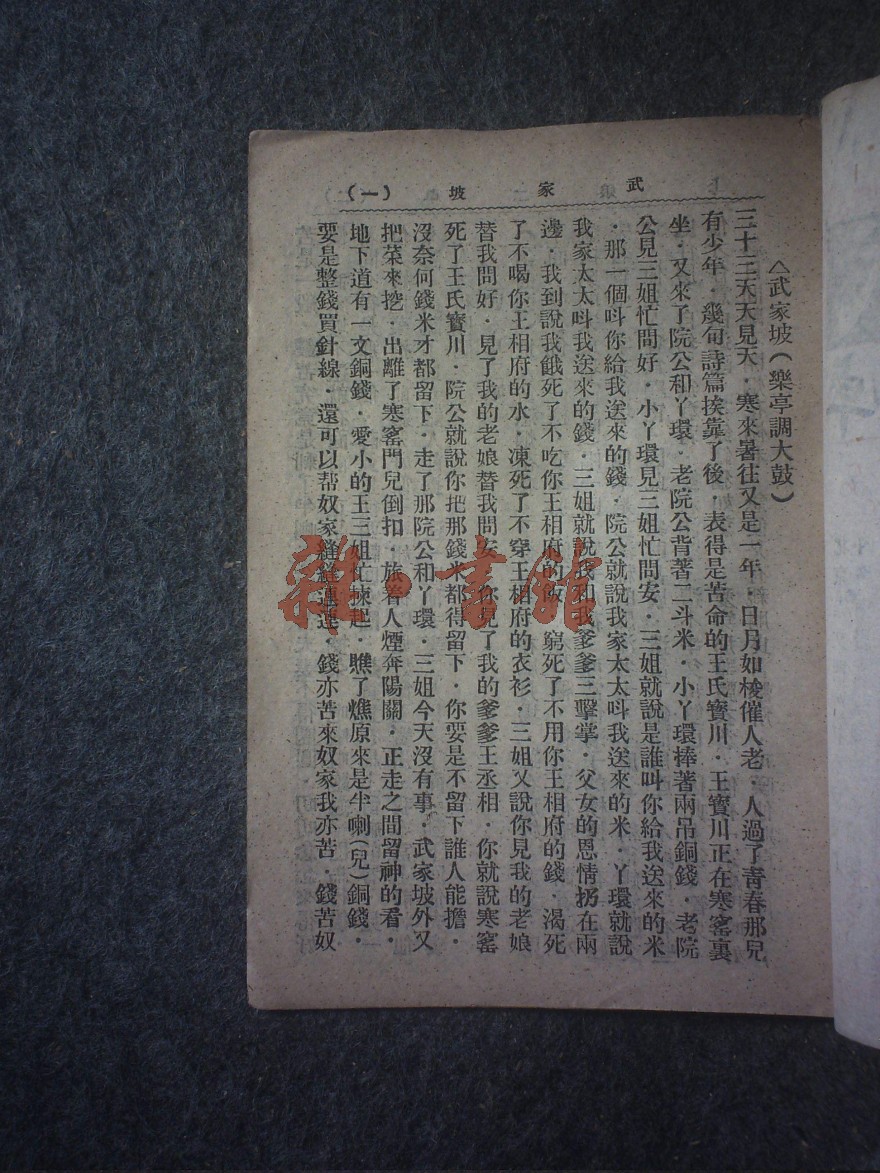 武家坡 (一)
〈武家坡(樂亭調大鼓)
三十三天天見天．寒來暑往又是一年．日月如梭催人老．人過了青春那兒
有少年．幾句詩篇挨靠了後．表得是苦命的王氏寶川．王寶川正在寒窰裏
坐．又來了院公和丫環．老院公背著二斗米．小丫環捧著兩吊銅錢．老院
公見三姐忙問好．小丫環見三姐忙問安．三姐就說是誰叫你給我送來的米
．那一個呌你給我送來的錢．院公就說我家太太呌我送來的米．丫環就說
我家太太呌我送來的錢．三姐就說我和我爹爹三擊掌．父女的恩情扔在兩
邊．我到說我餓死了不吃你王相府的飯．窮死了不用你王相府的錢．渴死
了不喝你王相府的水．凍死了不穿王相府的衣衫．三姐又說你見我的老娘
替我問好．見了我的老娘替我問安．你見了我的爹爹王丞相．你就說寒窰
死了王氏寶川．院公就說你把那錢米都得留下．你要是不留下誰人能擔．
沒奈何錢米才都留下．走了那院公和丫環．三姐今天沒有事．武家坡外又
把菜來挖．出離了寒窰門兒倒扣．旅着人煙奔陽關．正走之間留神的看．
地下道有一文銅錢．愛小的王三姐忙揀起．瞧了燋原來是半喇(兒)銅錢．
要是整錢買針線．還可以帮奴家縫縫連連．錢亦苦來奴家我亦苦．錢苦奴
雜·書館